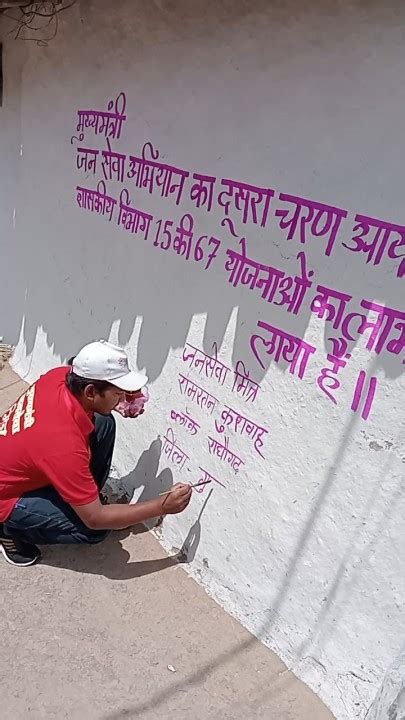 मुख्यमंत्री
जन सेवा अभियान का दूसरा चरण आय
शासकीय विभाग 15 की 67 योजनाओं का लाभ
लाया हैं ॥
जनसेवा मित्र
राजरतन कुशवाह
ब्लॉक राघौगढ़
जिला - गु